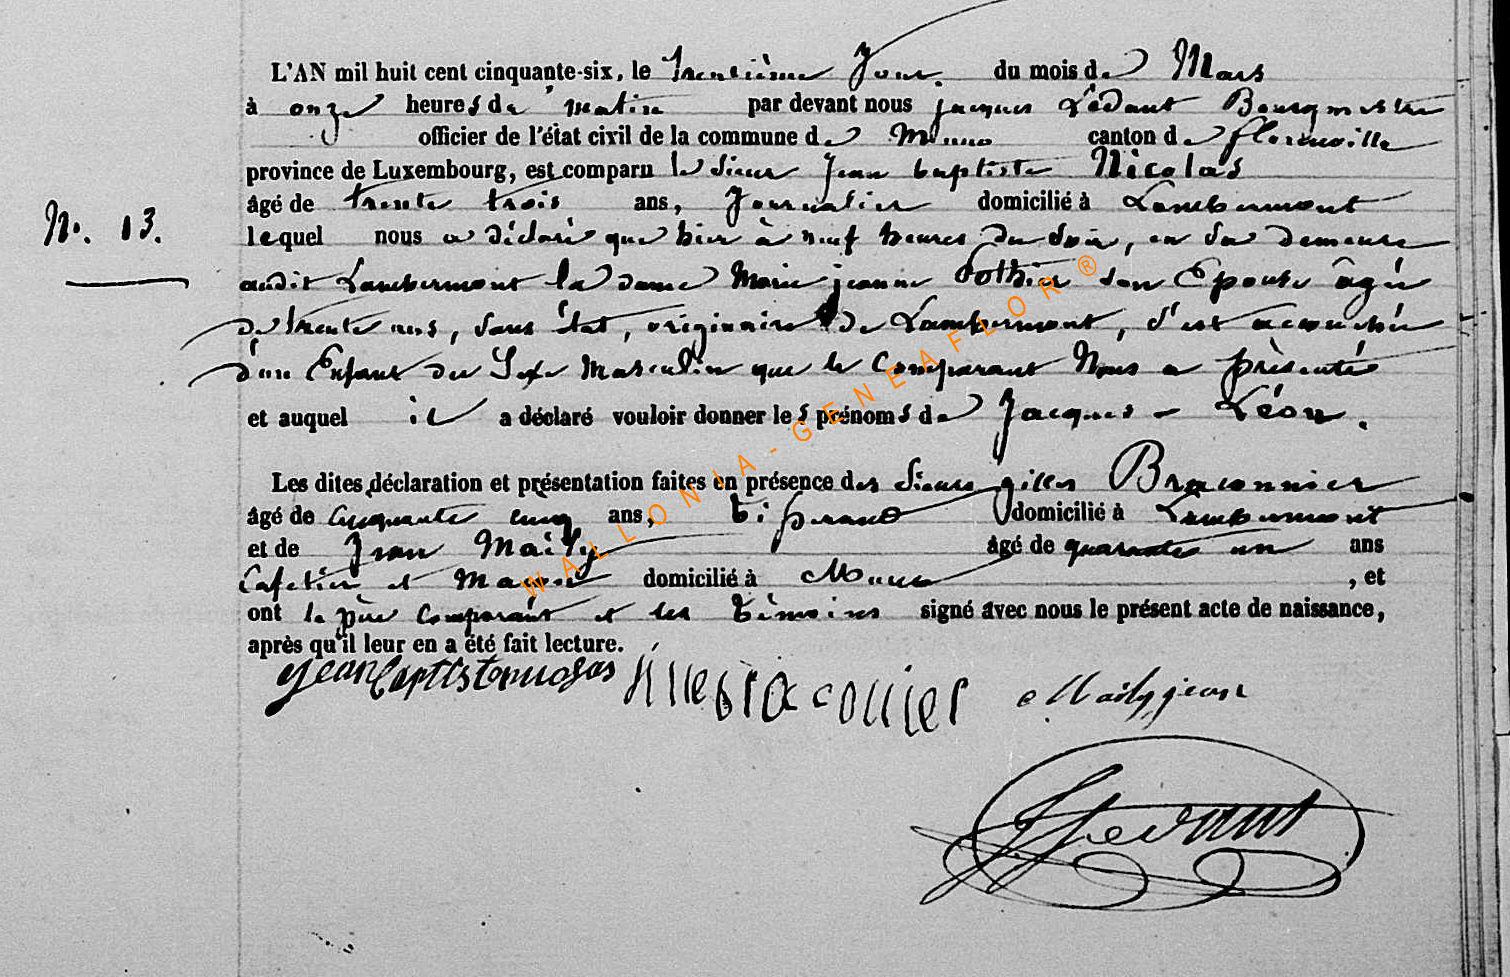 L'AN mil huit cent cinquante-six, le trentième jour. du mois de Mars
à onze heures du matin par devant nous jacques Lédant Bourgmestre
officier de l'état civil de la commune de Muno canton de florenville
province de Luxembourg, est comparu le sieur Jean baptiste Nicolas
âgé de trente trois ans, Journalier domicilié à Lambermont
N°. 13.
lequel nous a déclaré que hier à neuf heures du soir, en sa demeure
audit Lambermont la dame Marie jeanne Pothier son Epouse âgée
de trente ans, sans état, originaire de Lambermont, s'est accouchée
d'un Enfant du Sexe Masculin que le Comparant Nous a présenté
et auquel il a déclaré vouloir donner les prénoms de Jacques - Léon.
Les dites déclaration et présentation faites en présence des Sieurs gilles Braconnier
âgé de cinquante cinq ans, domicilié à Lambermont
et de Jean Maily âgé de quarante un ans
Cafetier et domicilié à Muno , et
ont le père Comparant et les témoins signé avec nous le présent acte de naissance,
après qu'il leur en a été fait lecture.
jean baptiste nicolas gille braconier Maily jean
WALLONIA-GENEAFLOR®